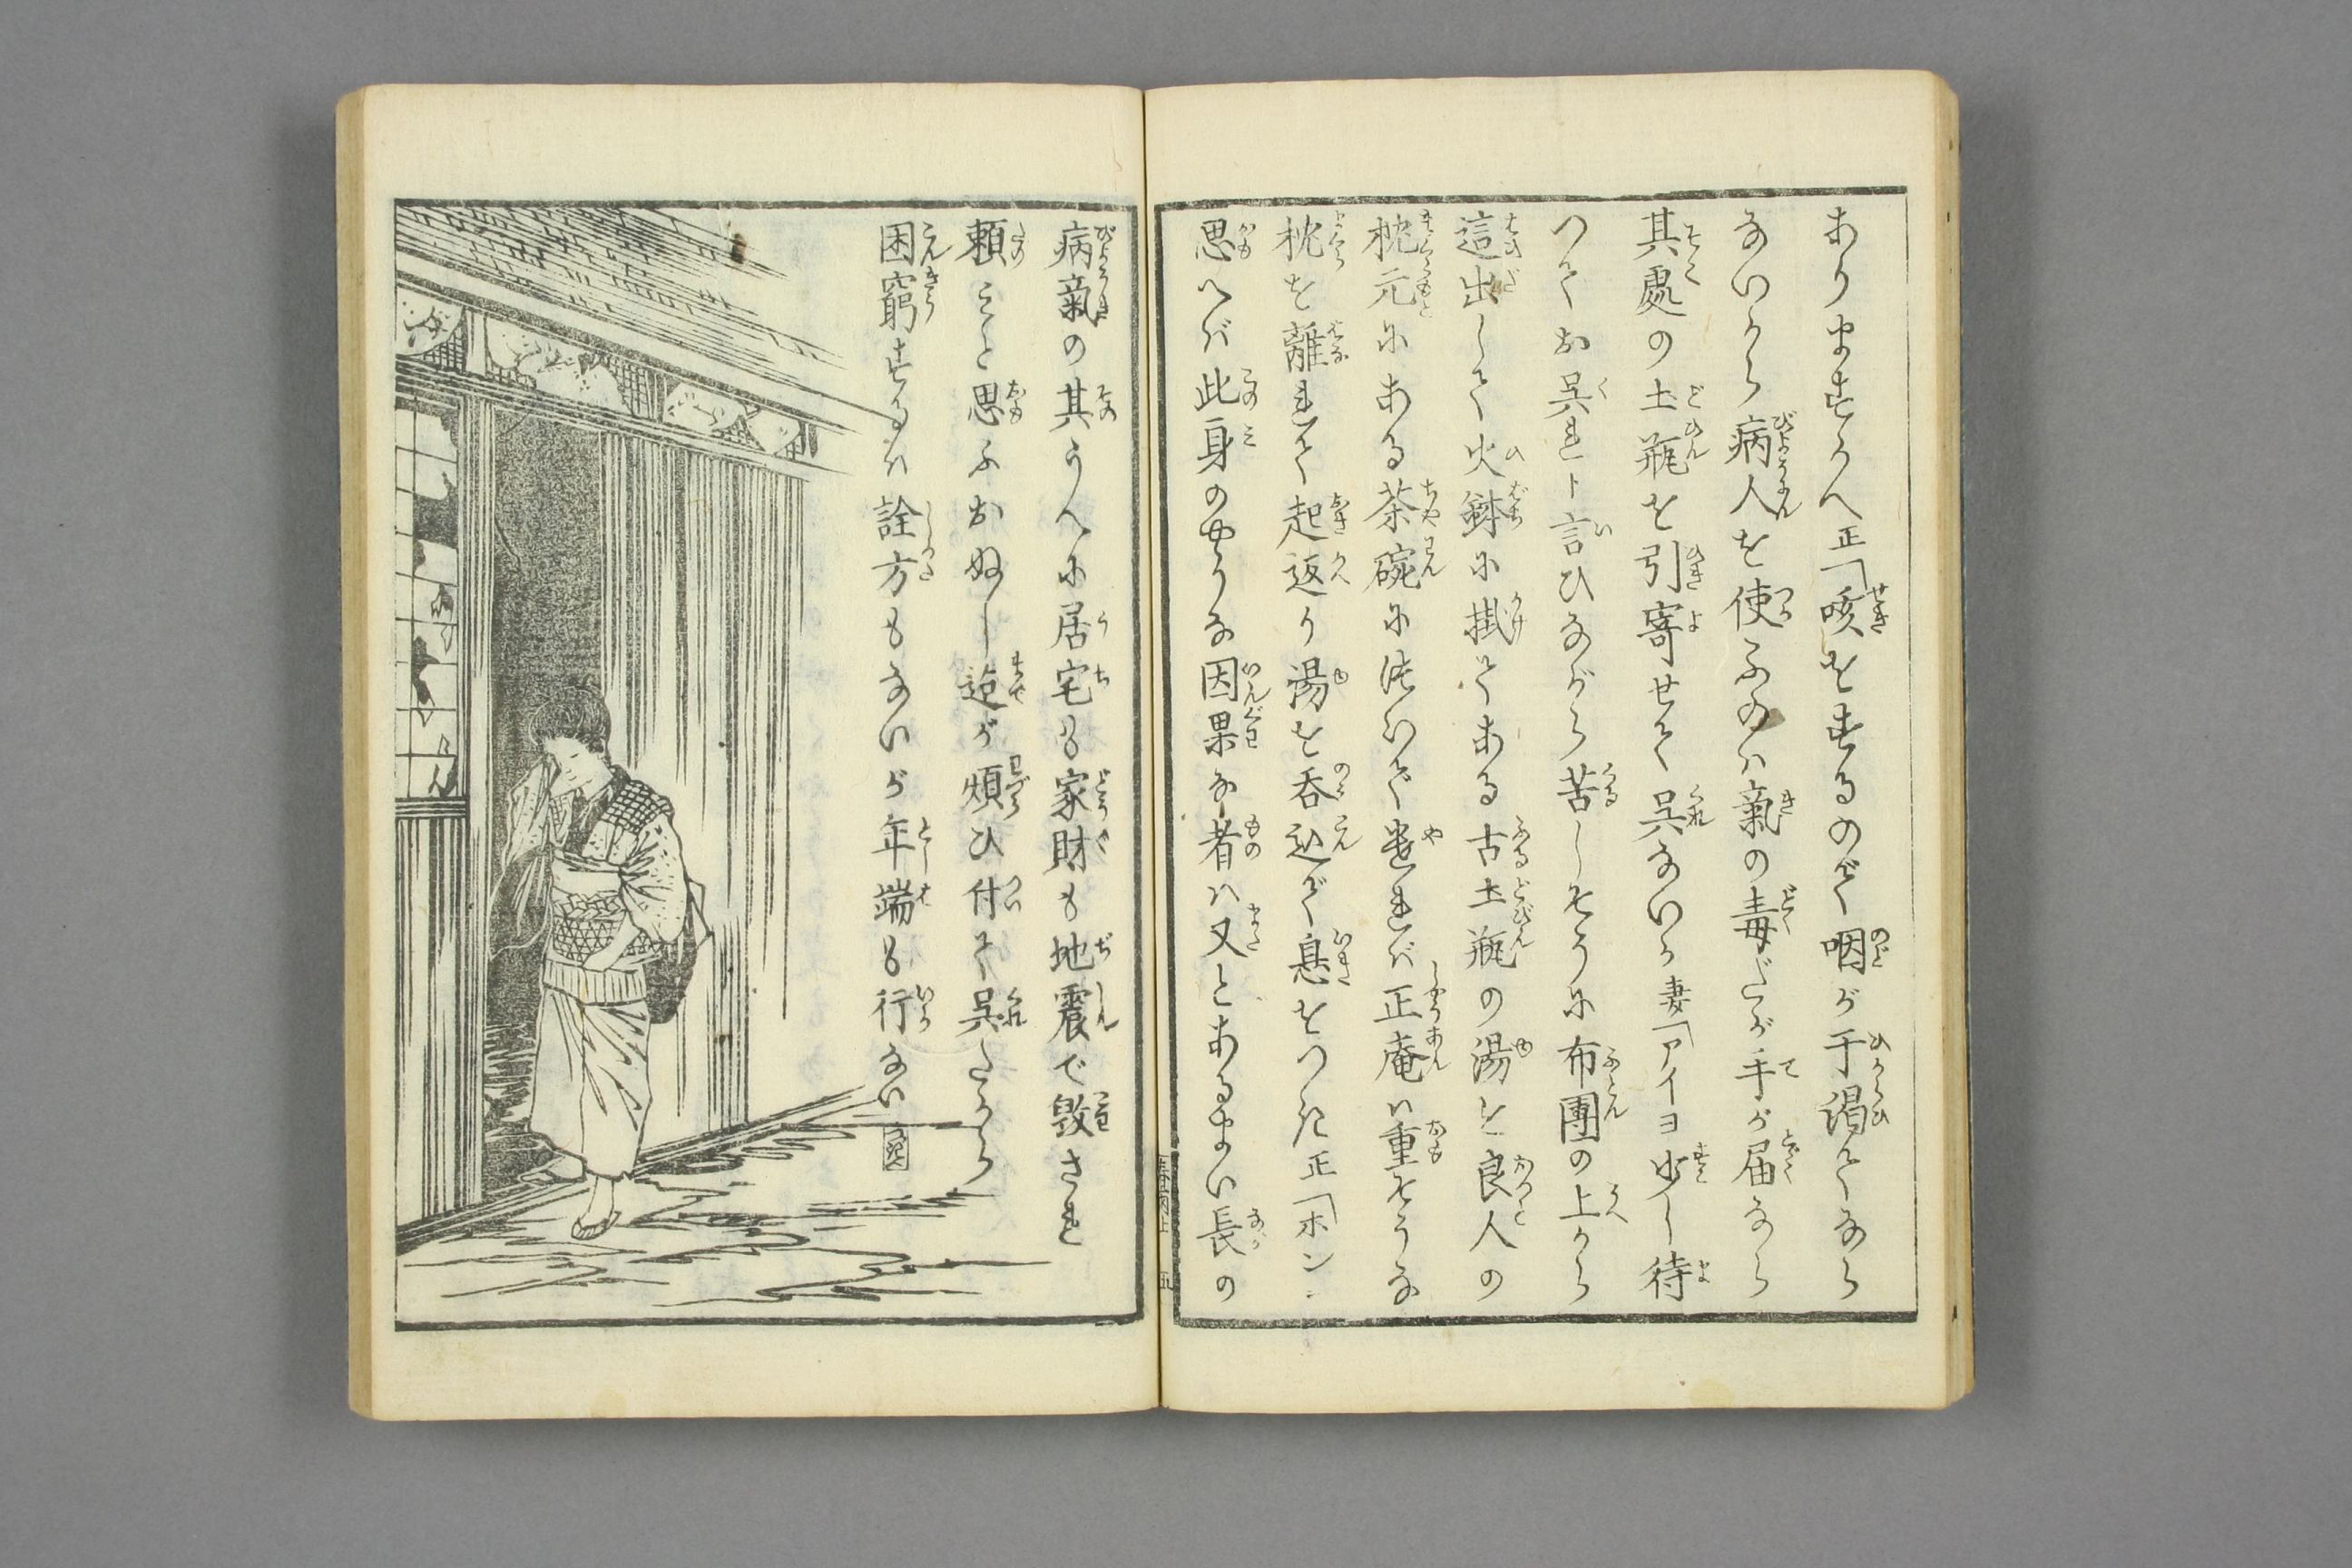 ありますかへ正「咳をするので咽が干渇てなら
ないから病人を使ふのハ氣の毒だが手が届なら
其處の土瓶を引寄せて呉ないか妻「アイヨ少し待
つてお呉れト言ひながら苦しそうに布團の上から
這出して火鉢に掛てある古土瓶の湯を良人の
枕元にある茶碗に注いで遣れバ正庵ハ重そうな
枕を離れて起返り湯を呑込で息をつき正「ホン
思へバ此身のやうな因果な者ハ又とあるまい長の
病氣の其うへに居宅も家財も地震で毀され
頼みと思ふおぬし迄が煩ひ付て呉たから
困窮するハ詮方もないが年端も行ない
五